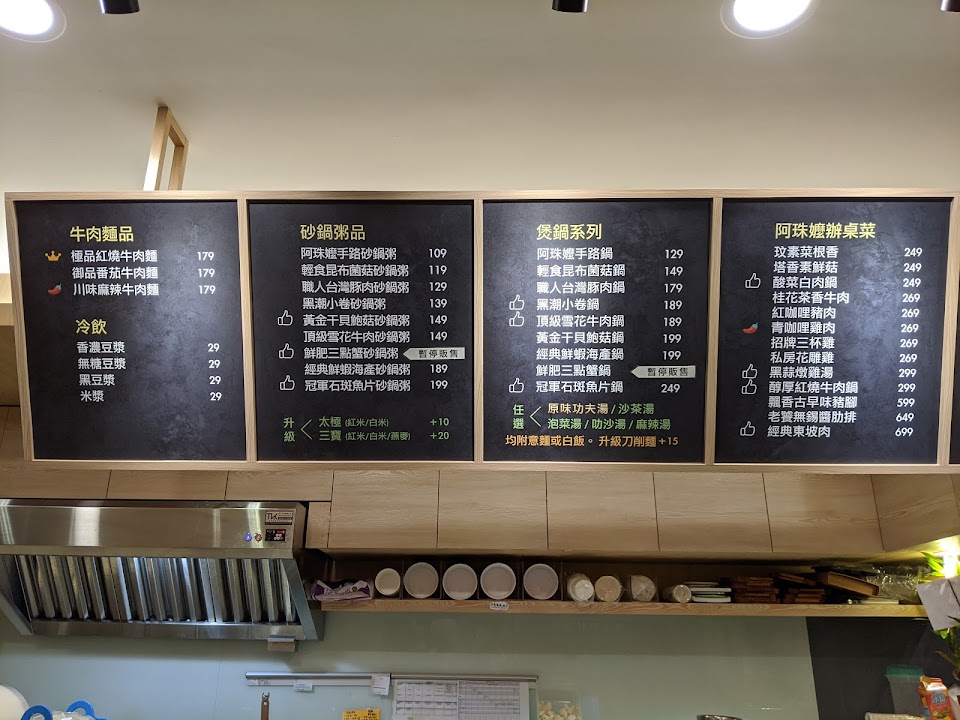 牛肉麵品
極品紅燒牛肉麵 179
御品番茄牛肉麵 179
川味麻辣牛肉麵 179
冷飲
香濃豆漿 29
無糖豆漿 29
黑豆漿 29
米漿 29
砂鍋粥品
阿珠嬤手路砂鍋粥 109
輕食昆布菌菇砂鍋粥 119
職人台灣豚肉砂鍋粥 129
黑潮小卷砂鍋粥 139
黃金干貝鮑菇砂鍋粥 149
頂級雪花牛肉砂鍋粥 149
鮮肥三點蟹砂鍋粥 暫停販售
經典鮮蝦海產砂鍋粥 189
冠軍石斑魚片砂鍋粥 199
升級 < 太極 (紅米/白米) +10
三寶 (紅米/白米/燕麥) +20
煲鍋系列
阿珠嬤手路鍋 129
輕食昆布菌菇鍋 149
職人台灣豚肉鍋 179
黑潮小卷鍋 189
頂級雪花牛肉鍋 189
黃金干貝鮑菇鍋 199
經典鮮蝦海產鍋 199
鮮肥三點蟹鍋 暫停販售
冠軍石斑魚片鍋 249
任選 < 原味功夫湯 / 沙茶湯
泡菜湯 / 叻沙湯 / 麻辣湯
均附意麵或白飯。升級刀削麵+15
阿珠嬤辦桌菜
玟素菜根香 249
塔香素鮮菇 249
酸菜白肉鍋 249
桂花茶香牛肉 269
紅咖哩豬肉 269
青咖哩雞肉 269
招牌三杯雞 269
私房花雕雞 269
黑蒜燉雞湯 299
醇厚紅燒牛肉鍋 299
飄香古早味豬腳 599
老饕無錫醬肋排 649
經典東坡肉 699